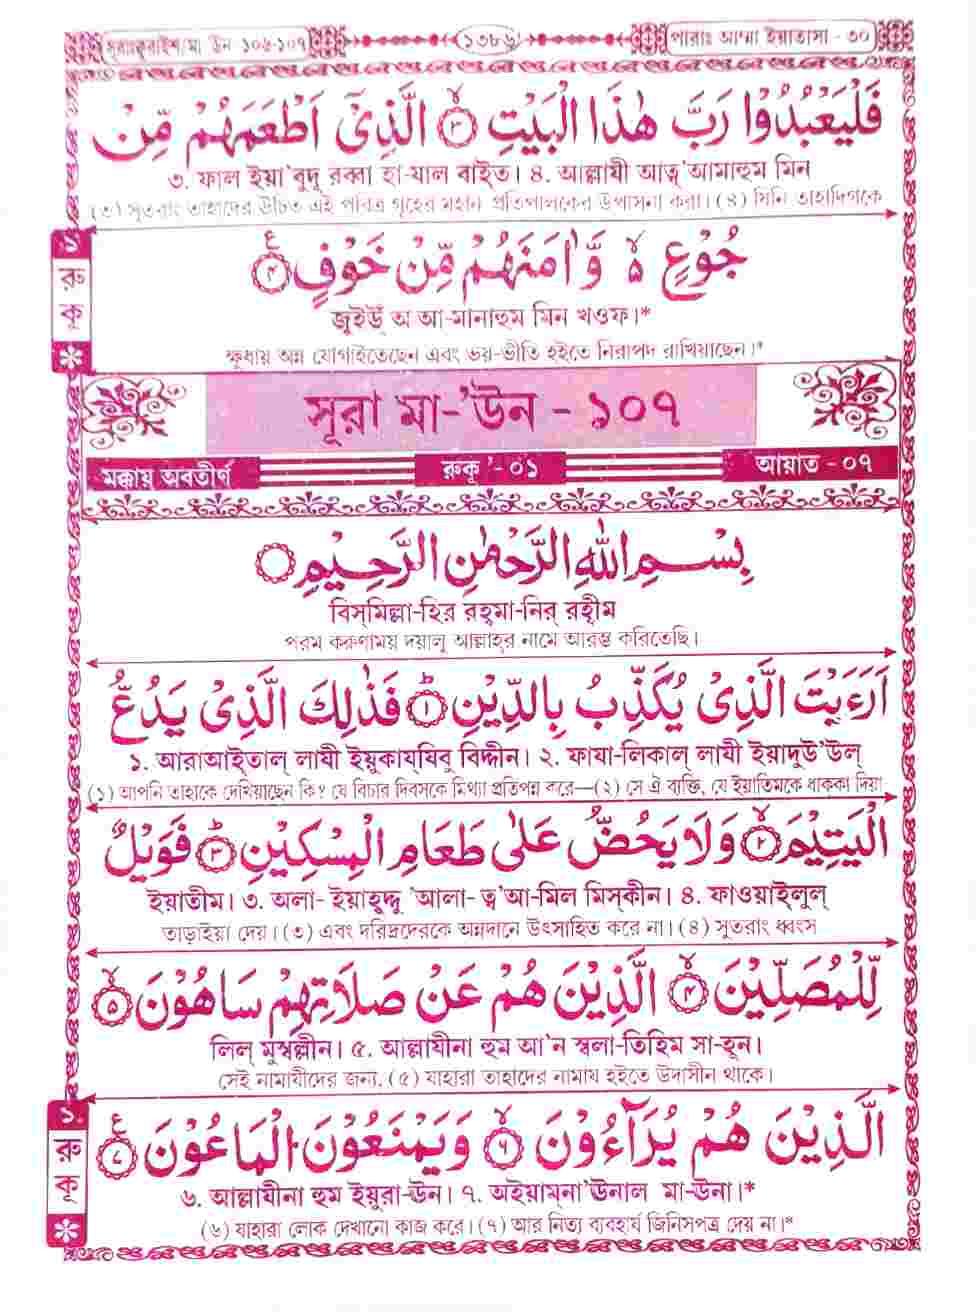 সূরাঃকুরাইশ/মা ঊন ১০৬-১০৭ ১৩৮৬ পারাঃ আম্মা ইয়াতাসা - ৩০
فَلْيَعْبُدُوْا رَبَّ هٰذَا الْبَيْتِ ۙ‏﴿۳﴾ الَّذِىْٓ اَطْعَمَهُمْ مِّنْ
৩. ফাল ইয়া'বুদূ রব্বা হা-যাল বাইত। ৪. আল্লাযী আত্ব'আমাহুম মিন
(৩) সুতরাং তাহাদের উচিত এই পবিত্র গৃহের মহান প্রতিপালকের উপাসনা করা। (৪) যিনি তাহাদিগকে
جُوْعٍ ۙ۬ وَّاٰمَنَهُمْ مِّنْ خَوْفٍ ﴿۴﴾ ع
জূইউঁ অ আ-মানাহুম মিন খওফ।*
ক্ষুধায় অন্ন যোগাইতেছেন এবং ভয়-ভীতি হইতে নিরাপদ রাখিয়াছেন।*
১
রুকূ
সূরা মা-'ঊন - ১০৭
মক্কায় অবতীর্ণ রুকূ '- ০১ আয়াত - ০৭
بِسْمِ اللّٰهِ الرَّحْمٰنِ الرَّحِيْمِ
বিস্‌মিল্লা-হির রহ্‌মা-নির্ রহীম
পরম করুণাময় দয়ালু আল্লাহ্‌র নামে আরম্ভ করিতেছি।
اَرَءَيْتَ الَّذِىْ يُكَذِّبُ بِالدِّيْنِ ؕ‏﴿۱﴾ فَذٰلِكَ الَّذِىْ يَدُعُّ
১. আরাআইতাল্ লাযী ইয়ুকায্‌যিবু বিদ্দীন। ২. ফাযা-লিকাল্ লাযী ইয়াদু'উ'ল্
(১) আপনি তাহাকে দেখিয়াছেন কি? যে বিচার দিবসকে মিথ্যা প্রতিপন্ন করে—(২) সে ঐ ব্যক্তি, যে ইয়াতিমকে ধাক্কা দিয়া
الْيَتِيْمَ ۙ‏﴿۲﴾ وَلَا يَحُضُّ عَلٰى طَعَامِ الْمِسْكِيْنِ ؕ‏﴿۳﴾ فَوَيْلٌ
ইয়াতীম। ৩. অলা- ইয়াহুদ্দু 'আলা- ত্ব'আ-মিল মিস্‌কীন। ৪. ফাওয়াইলুল্
তাড়াইয়া দেয়। (৩) এবং দরিদ্রদেরকে অন্নদানে উৎসাহিত করে না। (৪) সুতরাং ধ্বংস
لِّلْمُصَلِّيْنَ ۙ‏﴿۴﴾ الَّذِيْنَ هُمْ عَنْ صَلَاتِهِمْ سَاهُوْنَ ۙ‏﴿۵﴾
লিল্ মুস্বল্লীন। ৫. আল্লাযীনা হুম আ'ন স্বলা-তিহিম সা-হূন।
সেই নামাযীদের জন্য. (৫) যাহারা তাহাদের নামায হইতে উদাসীন থাকে।
الَّذِيْنَ هُمْ يُرَآءُوْنَ ۙ‏﴿۶﴾ وَيَمْنَعُوْنَ الْمَاعُوْنَ ﴿۷﴾ ع
৬. আল্লাযীনা হুম ইয়ুরা-ঊন। ৭. অইয়ামনা'ঊনাল মা-ঊনা।*
(৬) যাহারা লোক দেখানো কাজ করে। (৭) আর নিত্য ব্যবহার্য জিনিসপত্র দেয় না।*
১
রুকূ